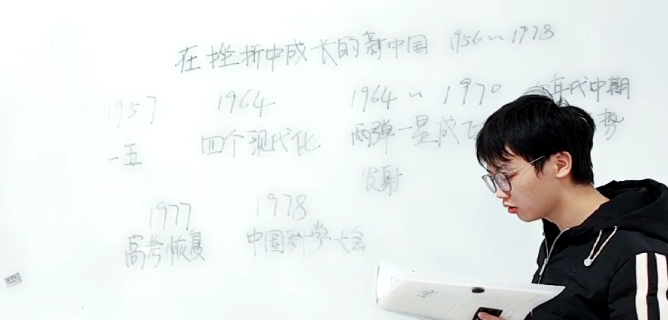 在挫折中成长的新中国 1956~1978
1957 1964 1964~1970 年代中期
一五 四个现代化 两弹一星成 势
发射
1977 1978
高考恢复 中国科学大会